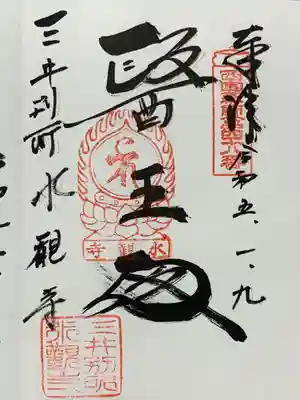 奉拝 令和五.一.九
西国薬師第四十八番
醫王殿
水観寺
三井別所水観寺
三井別所
水観寺